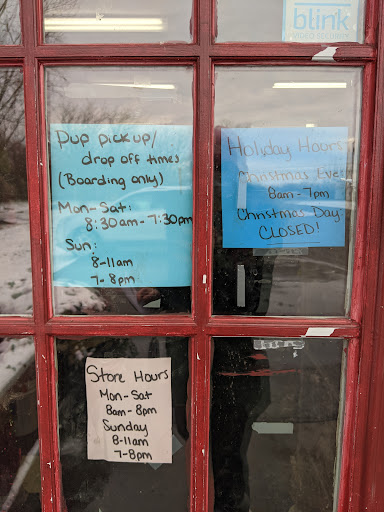 blink
Pup pickup/
drop off times
(Boarding only)
Mon-Sat:
8:30am-7:30pm
Sun:
8-11am
7-8pm
Holiday Hours
Christmas Eve:
8am-7pm
Christmas Day
CLOSED!
Store Hours
Mon-Sat
8am-8pm
Sunday
8-11am
7-8pm